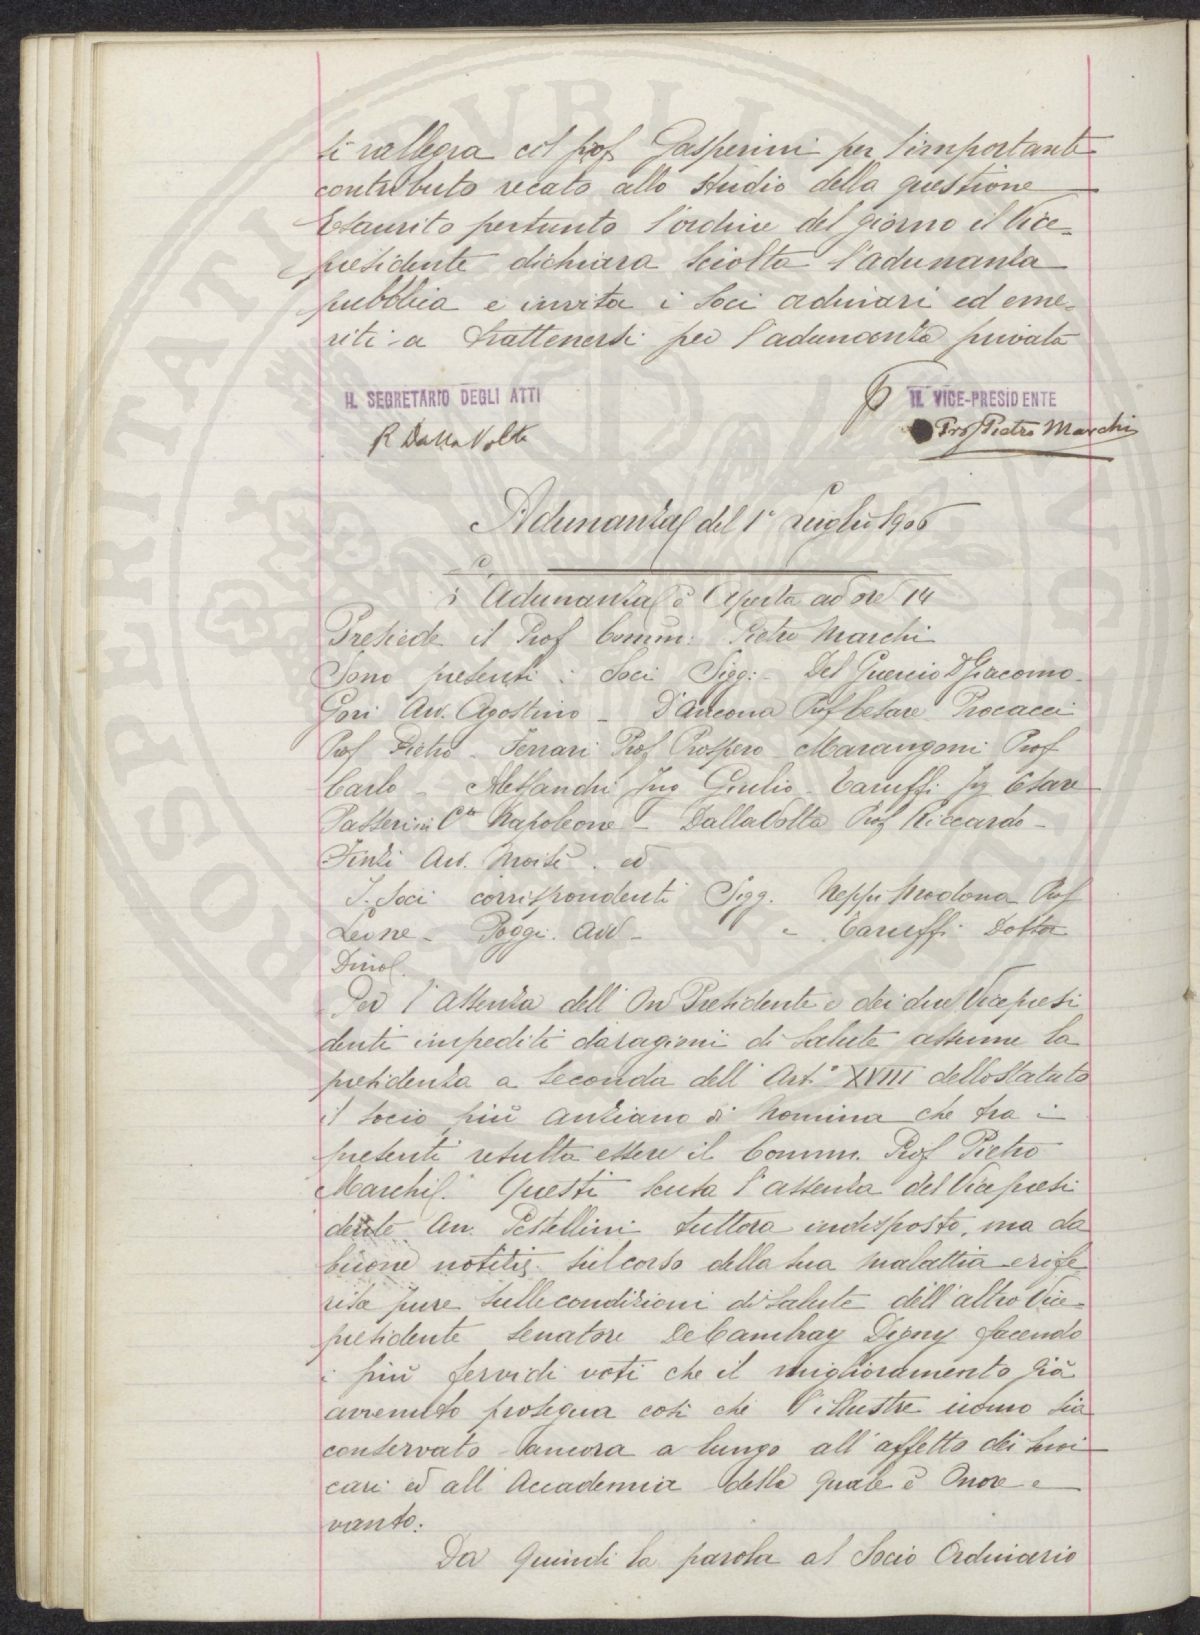 si rallegra col prof Gasperini per l'importante
contributo recato allo studio della questione
Esaurito pertanto l'ordine del giorno il Vice-
presidente dichiara sciolta l'adunanza
pubblica e invita i Soci ordinari ed eme-
riti a trattenersi per l'adunanza privata
IL SEGRETARIO DEGLI ATTI
IL VICE-PRESIDENTE
R Dalla Volta
Prof Pietro Marchi
Adunanza del 1° Luglio 1906
L'Adunanza è aperta ad ore 14
Presiede il Prof Comm: Pietro Marchi
Sono presenti i Soci Sigg:- Del Guercio D Giacomo-
Gori Avv. Agostino - D'Ancona Prof Cesare Procacci
Prof Pietro - Ferrari Prof Prospero - Marangoni Prof
Carlo - Alessandri Ing Giulio - Taruffi Ing Cesare
Passerini Cte Napoleone - Dalla Volta Prof Riccardo -
Finzi Avv. Moisè . ed
I Soci corrispondenti Sigg. Neppi Modona Prof
Leone - Poggi Avv - " Taruffi Dottor
Dino.
Per l'assenza dell'On Presidente e dei due Vicepresi
denti impediti da ragioni di salute assume la
presidenza a seconda dell'Art° XVIII dello Statuto
il socio più anziano di nomina che tra i
presenti resulta essere il Comm. Prof Pietro
Marchi. Questi scusa l'assenza del Vicepresi
dente On. Pestellini tuttora indisposto, ma da
buone notizie sul corso della sua malattia e rife
risce pure sulle condizioni di salute dell'altro Vice-
presidente Senatore De Cambray Digny facendo
i più fervidi voti che il miglioramento già
avvenuto prosegua così che l'illustre uomo sia
conservato ancora a lungo all'affetto dei suoi
cari ed all'Accademia della quale è onore e
vanto.
Da quindi la parola al Socio Ordinario